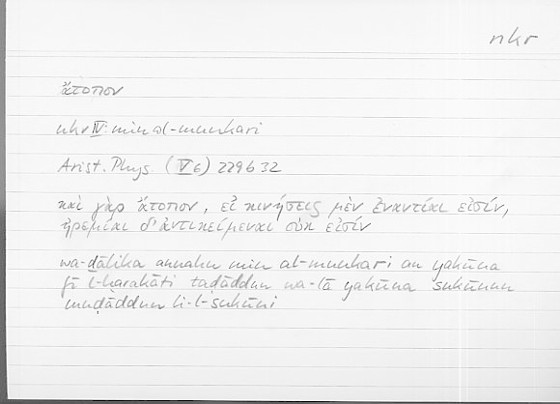 nkr
ἄτοπον
nkr IV: min al-munkari
Arist. Phys. (V 6) 229 b 32
καὶ γὰρ ἄτοπον, εἰ κινήσεις μὲν ἐναντίαι εἰσίν,
ἠρεμίαι δ' ἀντικείμεναι οὐκ εἰσίν
wa-ḏālika annahu min al-munkari an yakūna
fī l-ḥarakāti taḍāddun wa-lā yakūna sukūnun
muḍāddun li-l-sukūni